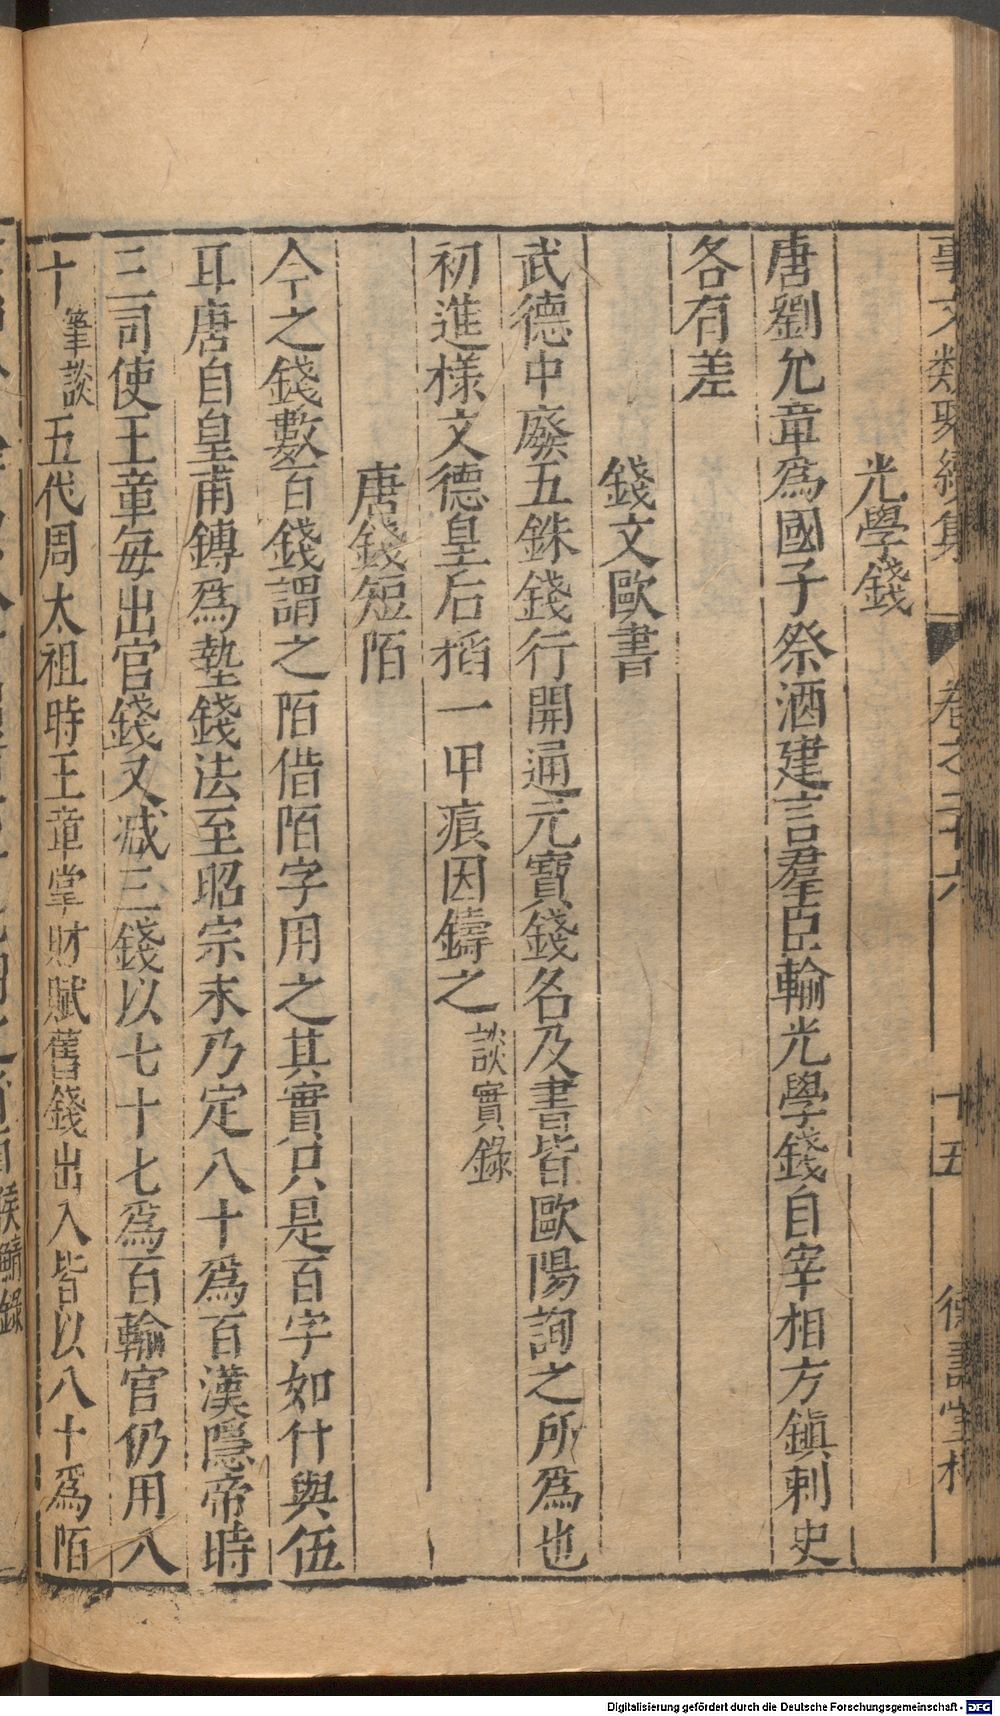 事文類聚續集 卷之二十六 十五 德壽堂梓
光學錢
唐劉允章爲國子祭酒建言羣臣輸光學錢自宰相方鎮刺史
各有差
錢文歐書
武德中廢五銖錢行開通元寶錢名及書皆歐陽詢之所爲也
初進樣文德皇后搯一甲痕因鑄之 談實錄
唐錢短陌
今之錢數百錢謂之陌借陌字用之其實只是百字如什與伍
耳唐自皇甫鎛爲墊錢法至昭宗末乃定八十爲百漢隱帝時
三司使王章每出官錢又减三錢以七十七爲百輸官仍用八
十 筆談 五代周太祖時王章掌財賦舊錢出入皆以八十爲陌
侯鯖錄
Digitalisierung gefördert durch die Deutsche Forschungsgemeinschaft - DFG